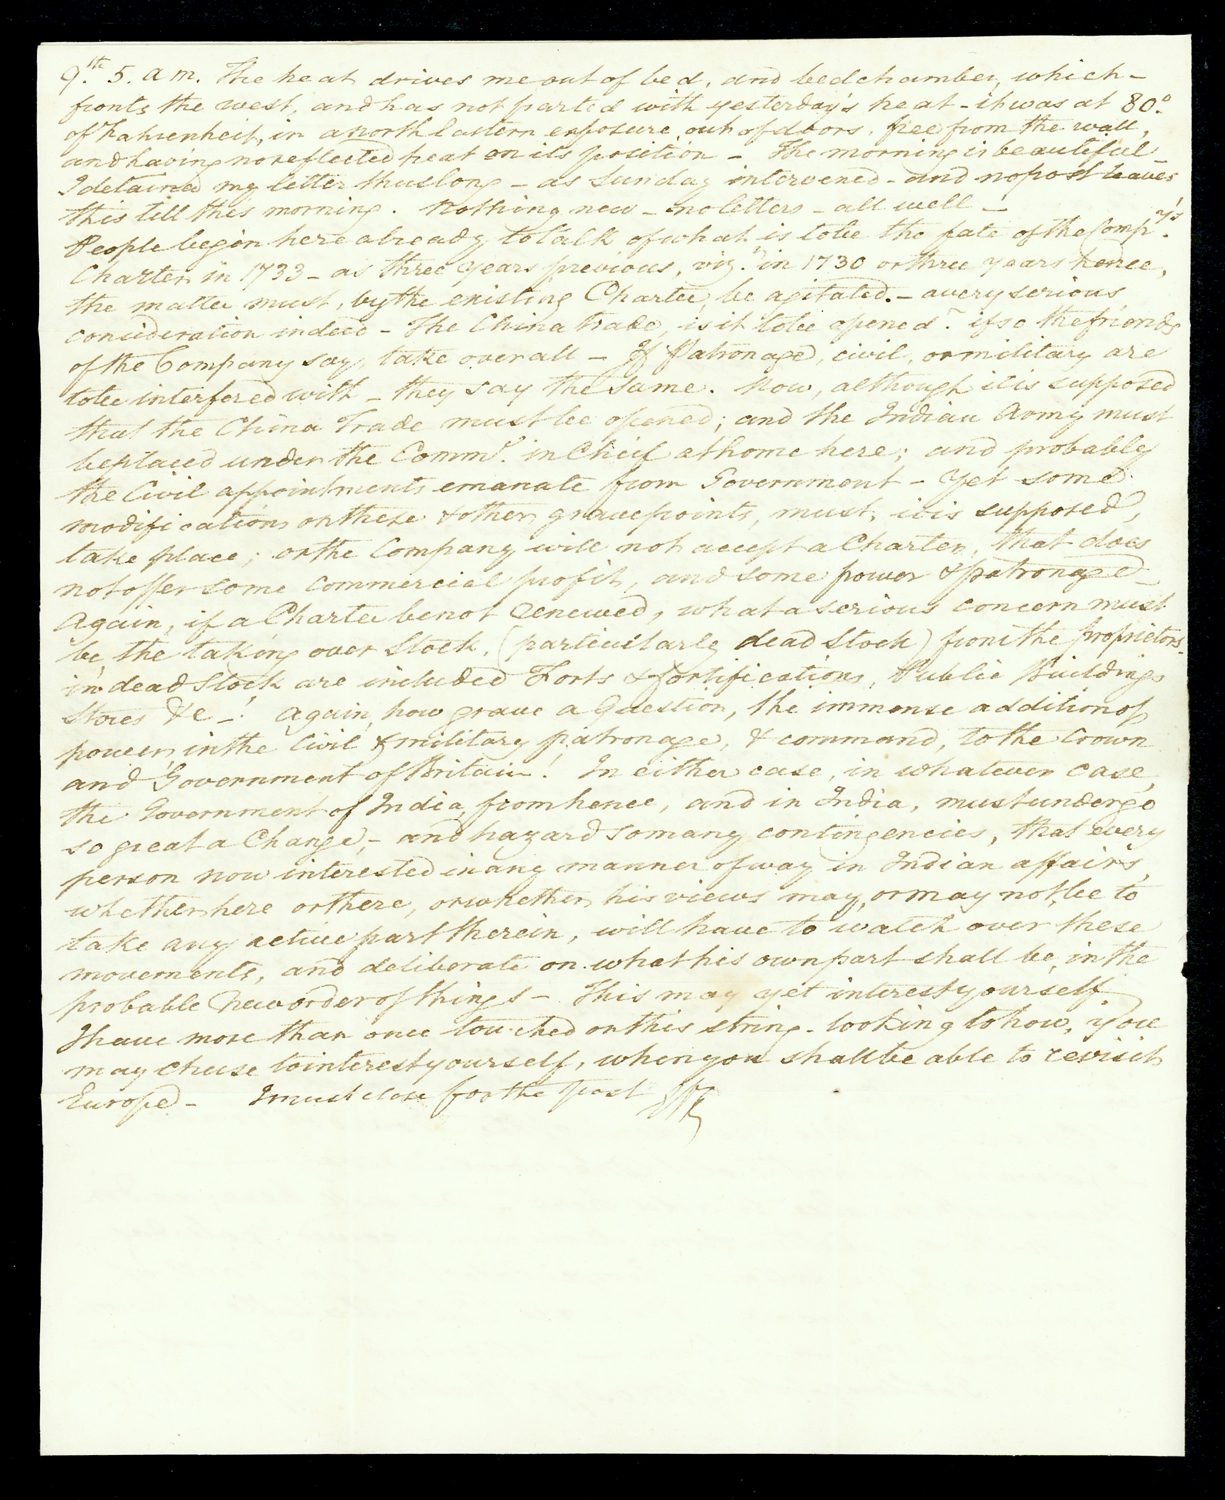 9.th 5. a m. The heat drives me out of bed, and bedchamber, which -
fronts the west, and has not parted with yesterday's heat - it was at 80.°
of Fahrenheit, in a north Eastern exposure, out of doors, free from the wall,
and having no reflected heat on its position - The morning is beautiful -
I detained my letter thus long - as Sunday intervened - and no post leaves
this till this morning. Nothing new - no letters - all well -
People begin here already to talk of what is to be the fate of the Comp.y's
Charter in 1733 - as three years previous, viz.t in 1730 or three years hence,
the matter must, by the existing Charter, be agitated. - a very serious
consideration indeed - The China Trade, is it to be opened? if so the friends
of the Company say, take over all - If Patronage, civil, or military are
to be interfered with - they say the same. Now, although it is supposed
that the China Trade must be opened; and the Indian Army must
be placed under the Comm.r in Cheif at home here; and probably
the Civil appointments emanate from Government - Yet some
modifications on these & other grave points, must, it is supposed,
take place; or the Company will not accept a Charter, that does
not offer some commercial profit, and some power & patronage -
Again, if a Charter be not renewed, what a serious concern must
be, the taking over Stock, (particularly dead Stock) from the Proprietors -
in dead Stock are included Forts & fortifications, Public Buildings
Stores &c -! Again, how grave a Question, the immense addition of
power, in the Civil & military patronage, & command, to the Crown
and Government of Britain! In either case, in whatever case,
the Government of India, from hence, and in India, must undergo
so great a Change, - and hazard so many contingencies, that every
person now interested in any manner of way in Indian affairs,
whether here or there, or whether his views may, or may not, be to
take any active part therein, will have to watch over these
movements, and deliberate on what his own part shall be, in the
probable new order of things - This may yet interest yourself
I have more than once touched on this string - looking to how, you
may chuse to interest yourself, when you shall be able to revisit
Europe - I must close for the post